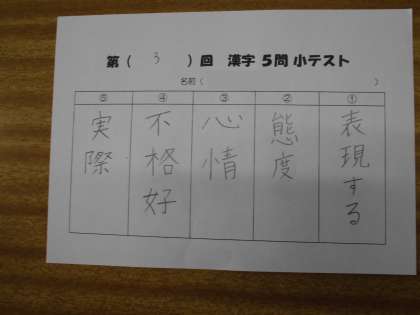 第（ 3 ）回 漢字 5問 小テスト
名前（ ）
① 表現する
② 態度
③ 心情
④ 不格好
⑤ 実際